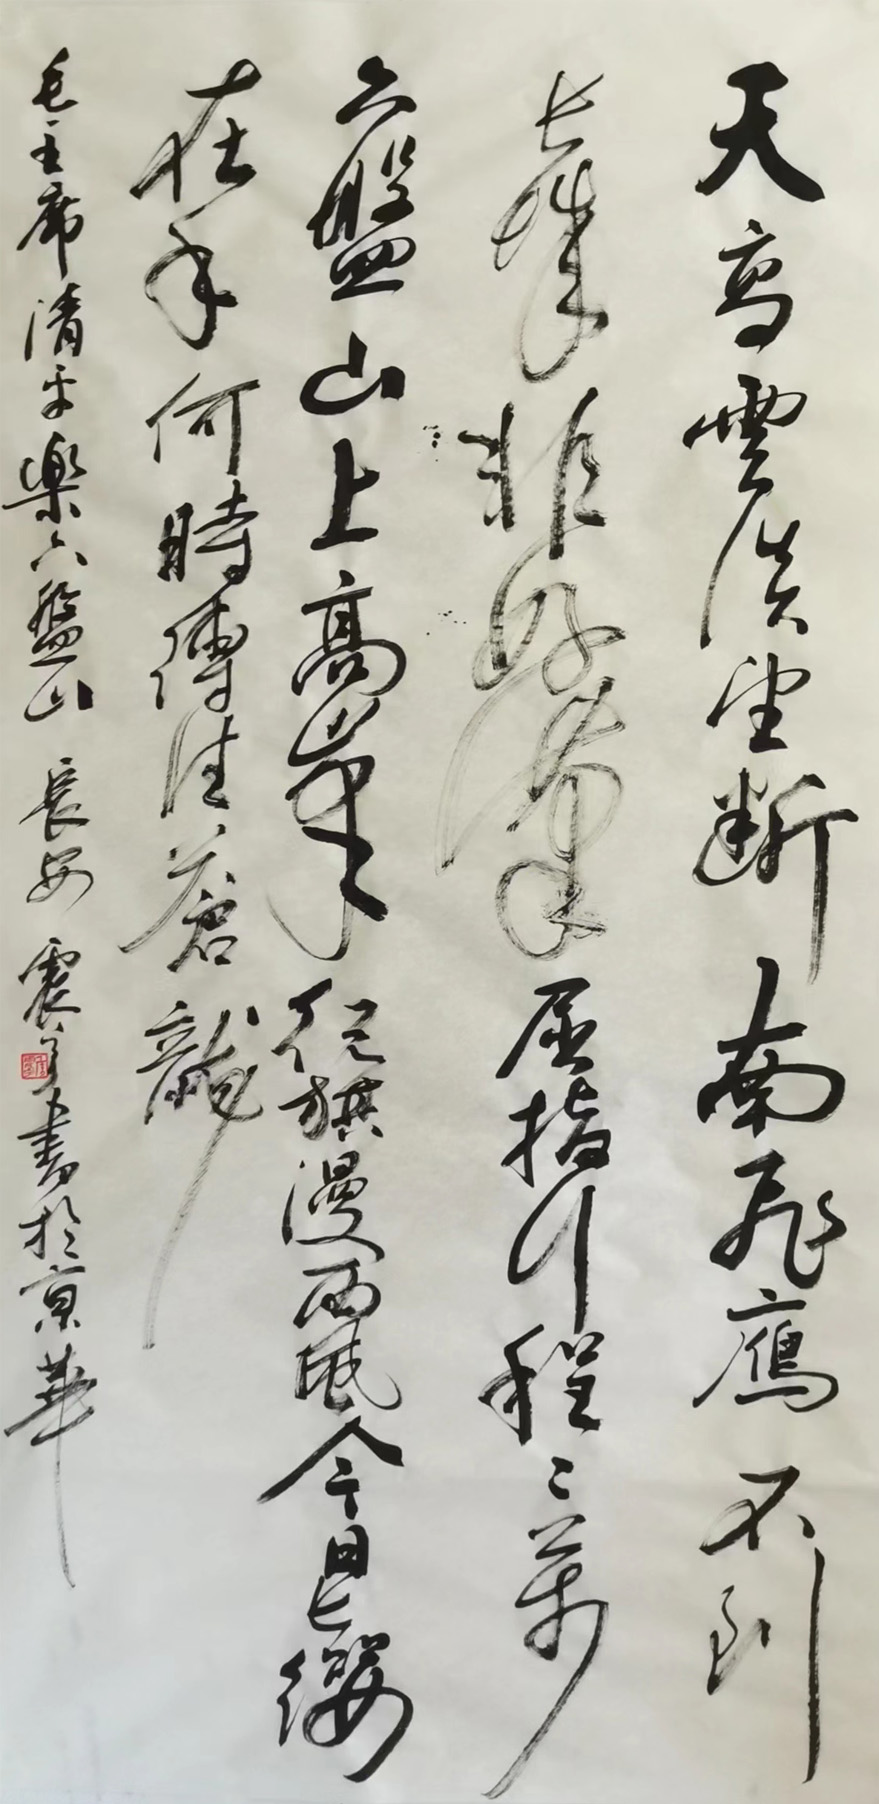 天高雲淡望斷南飛鴈不到
长城非好漢屈指行程二萬
六盤山上高峯紅旗漫西風今日长纓
在手何時縛住蒼龍
毛主席清平樂六盤山 長安 震書於京華